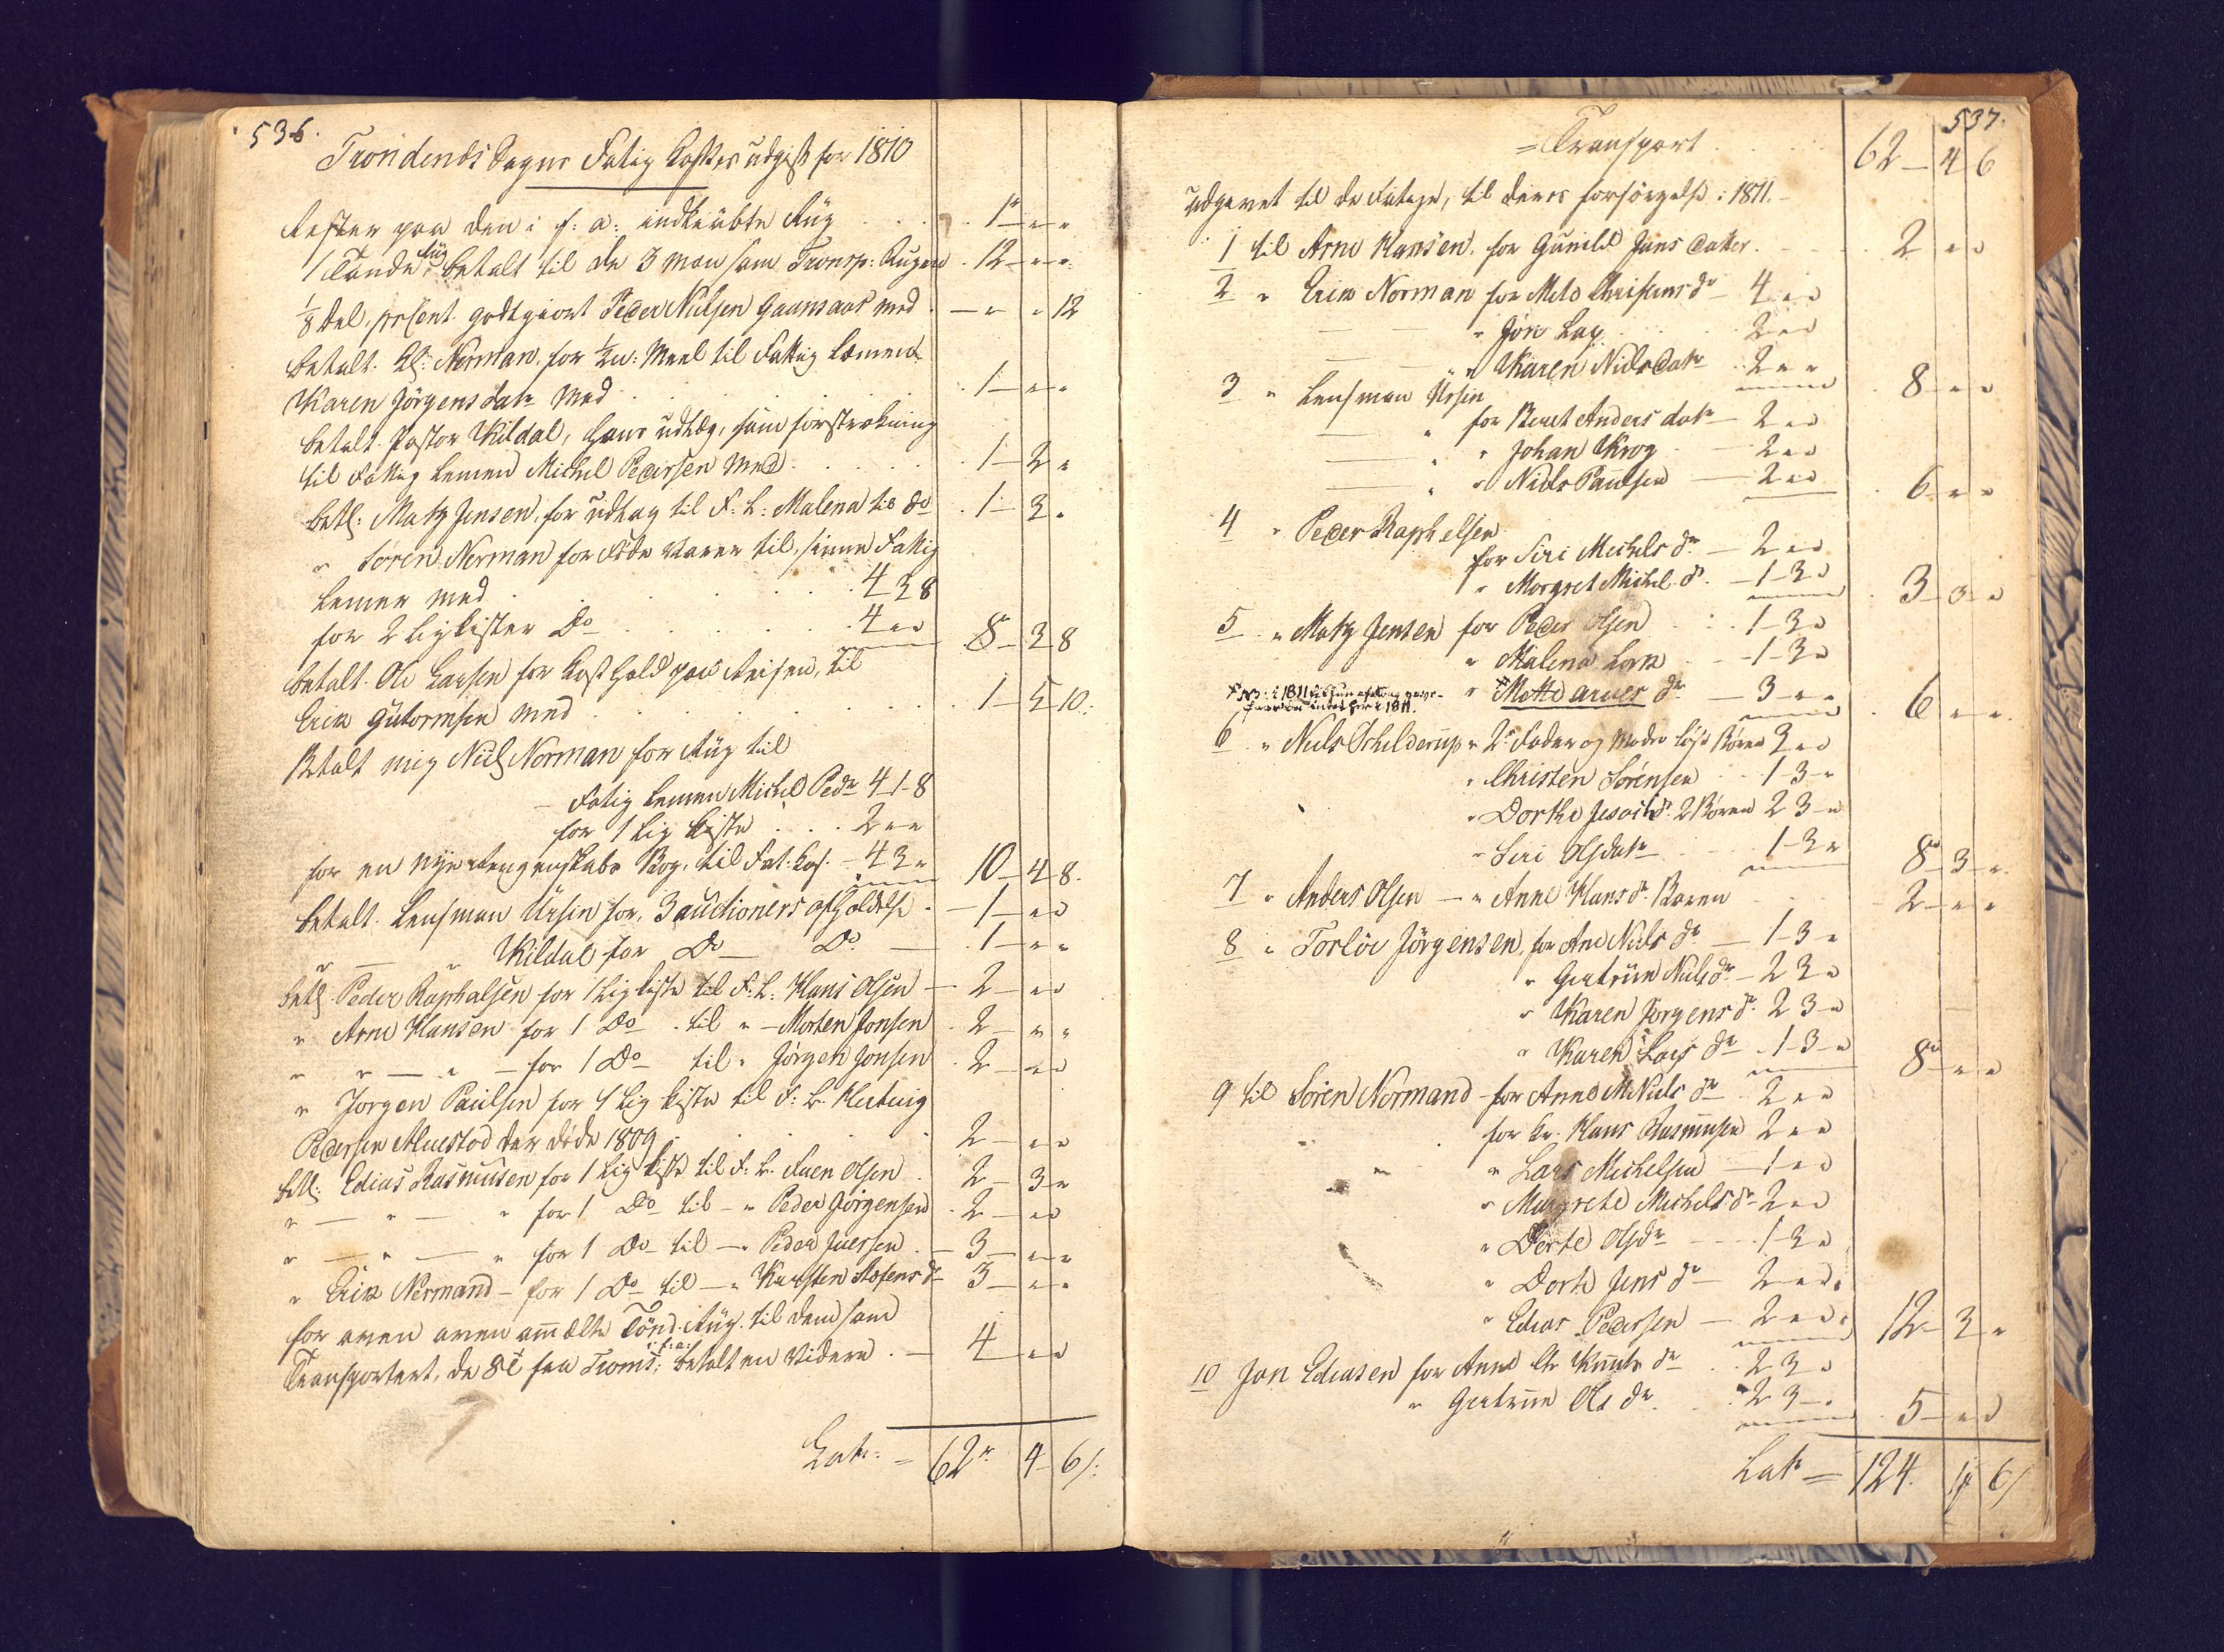 536.
Trondenæs Sogns Fatig Casses udgift for 1810
Rester paa den i f: a: indkiøbte Rüg . . . 1 " "
1 Tønde Rüg betalt til de 3 mæn som Transp: Rugen . 12 " "
1/8 Del, godtgiort Peder Nielsen Gaansaas med . — " " 12
betalt: Kl: Norman, for 1/2 W: Meel til Fattig Lemmet
Karen Jörgensdatr med . . . 1 " "
betalt Pastor Kildal, hans udlæg, som forstrekning
til Fattig Lemmet Michel Pedersen med . . . 1 — 2 "
betl: Matz Jensen, for udlæg til F: L: Malena til do . 1 — 3 "
" Sören Norman for Föde Varer til, sinne Fattig
Lemmer med . . . 4 3 8
for 2 Ligkister Do . . . 4 " " 8 — 3 8
betalt Ole Larsen for Kosthold paa Reisen, til
Erik Gutormsen med . . . 1 — 5 — 10:
Betalt mig Niels Norman for Rüg til
— Fatig Lemmet Michel Pedr 4 — 1 — 8
for 1 Lig Kiste . . . 2 " "
for en nye Regenskabs Bog, til Fat: Cas. — 4 3 " 10 — 4 8.
betalt Lensman Ursin for, 3 auctioners afholdelse . — 1 — " "
" — " Kildal for Do — Do — 1 — " "
betl: Peder Raphalsen for 1 Ligkiste til F: L: Hans Olsen — 2 — " "
" Arne Hansen for 1 Do til " — Morten Jonsen . 2 — " "
" " — " — for 1 Do til " Jörgen Jonsen . 2 — " "
" Jorgen Paulsen for 1 Lig Kiste til F: L: Hertvig
Pedersen der döde 1809 . . . 2 — " "
betl: Edias Rasmusen for 1 Lig Kiste til F: L: Fuen Olsen . 2 — 3 "
" — " — " for 1 Do til — " Peder Jörgensen . 2 — " "
" — " — " for 1 Do til — " Peder Juersen . — 3 — " "
" Erik Normand — for 1 Do til — " Karsten dr 3 — " "
for oven ommelte Tönd. Rüg til dem som
Transportert, de 8 t fra Troms: i f: a: betalt en Videre . — 4 — " "
Lat: = 62 4 6 /:
537.
= Transport . . . 62 — 4 6
udgivet til de Fatige, til deres forsörgelse i 1811. —
1 til Arne Hansen, for Gunild Jens Datter . . . 2 " "
2 " Erik Norman for Mete Christensdr — 4 " "
" Jon Lap . . . 2 " "
" Karen Nielsdatr . 2 " " . 8 " "
3 " Lensman Ursin
for Beret Andersdatr — 2 " "
" Johan Krog — 2 " "
" Niels Paulsen — 2 " " . 6 " "
4 " Peder Raphelsen
for Siri Michels dr — 2 " "
" Morgret Michel dr — 1 — 3 " . 3 — 3 — "
5 " Matz Jensen for Peder Olsen . . 1 — 3 "
" Malena Lars . — 1 — 3 "
" Mette Arnes dr — 3 — " " . 6 " "
6 " Niels Schilderup " 2 Fader og Moder löse Börn 3 " "
" Christen Sörensen . . 1 — 3 — "
" Dorthe dr 2 Börn 2 3 — "
" Siri Olsdatr . . . 1 — 3 " 8 3 — "
7 " Anders Olsen — " Anne Hansdr Baren . . . 2 — " "
8 " Torlöv Jörgensen, for Ane Niels dr — 1 — 3 — "
" Gertrun Niels dr — 2 3 — "
" Karen Jorgens dr 2 3 — "
" Karen Lars dr — 1 — 3 — " 8 " "
9 til Sören Normand — for Anne M Niels dr . 2 " "
for Hans Rasmusen 2 " "
" Lars Michelsen — 1 " "
" Margrete Michels dr — 2 " "
" Dorte Olsdr — . . 1 — 3 "
" Dorte Jens dr — 2 " "
" Edias Pedersen — 2 " " 12 — 3 "
10 Jon Ediasen for Anne Knuts dr . . 2 3 "
" Gertrun Ols dr . . . 2 3 — " . 5 — " "
Latr = 124. 4 6 /